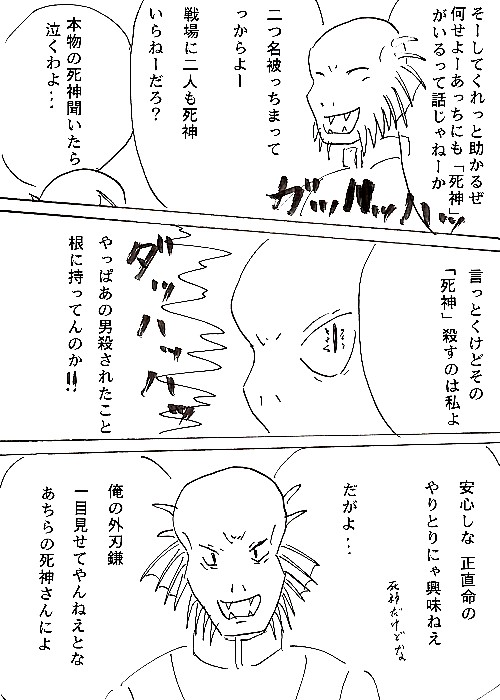 そーしてくれっと助かるぜ
何せよーあっちにも「死神」
がいるって話じゃねーか
二つ名被っちまって
っからよー
戦場に二人も死神
いらねーだろ?
ガッハッハッハッ
本物の死神聞いたら
泣くわよ…
言っとくけどその
「死神」殺すのは私よ
ダッハッハッ
やっぱあの男殺されたこと
根に持ってんのか!!
安心しな 正直命の
やりとりにゃ興味ねえ
死神だけどな
だがよ…
俺の外刃鎌
一目見せてやんねえとな
あちらの死神さんによ